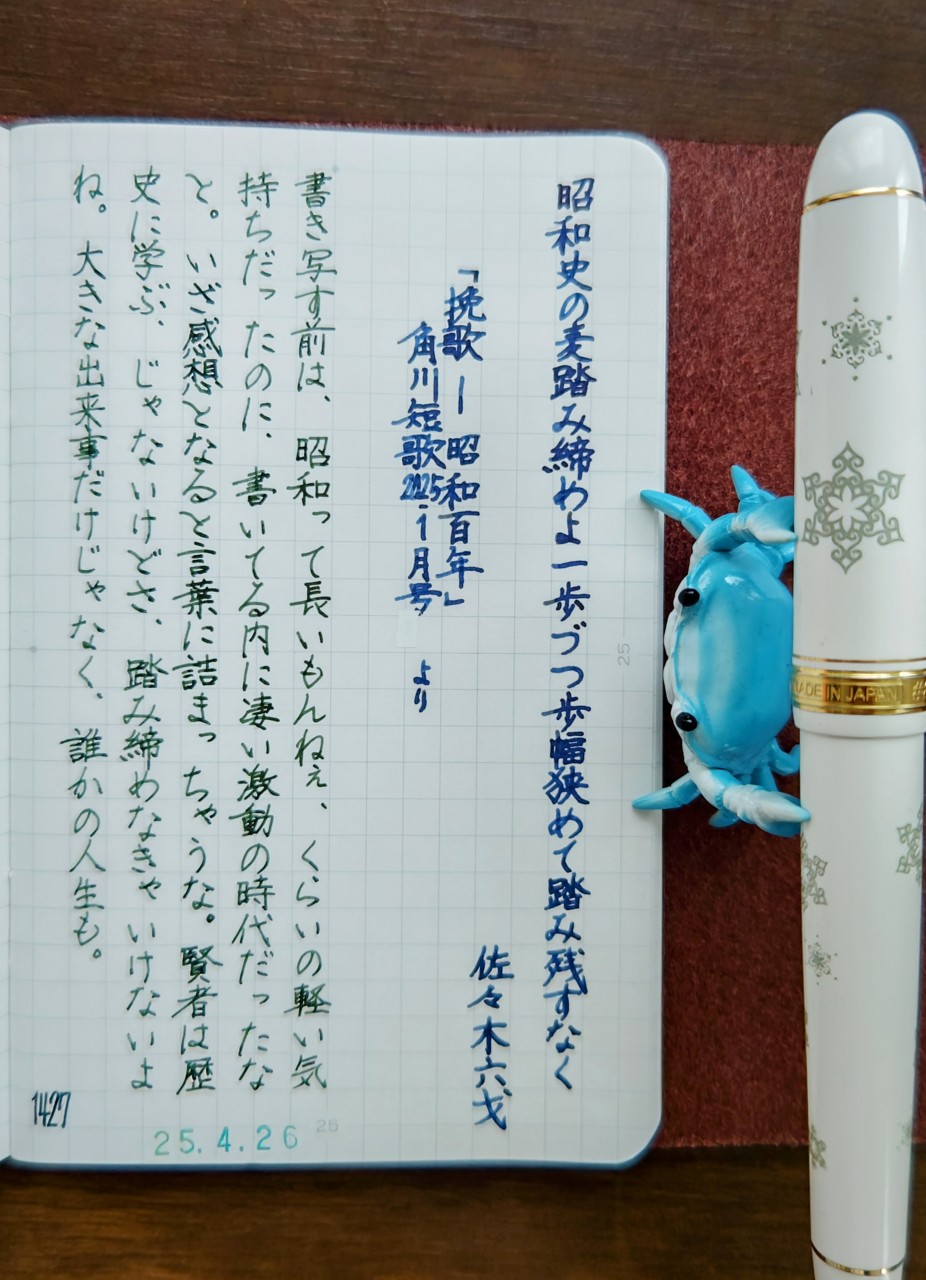 昭和史の麦踏み締めよ一歩づつ歩幅狭めて踏み残すなく
佐々木六戈
「挽歌ー昭和百年」
角川短歌2025.1月号 より
書き写す前は、昭和って長いもんねぇ、くらいの軽い気
持ちだったのに、書いてる内に凄い激動の時代だったな
と。いざ感想となると言葉に詰まっちゃうな。賢者は歴
史に学ぶ、じゃないけどさ、踏み締めなきゃいけないよ
ね。大きな出来事だけじゃなく、誰かの人生も。
1427
25.4.26
25
25
MADE IN JAPAN